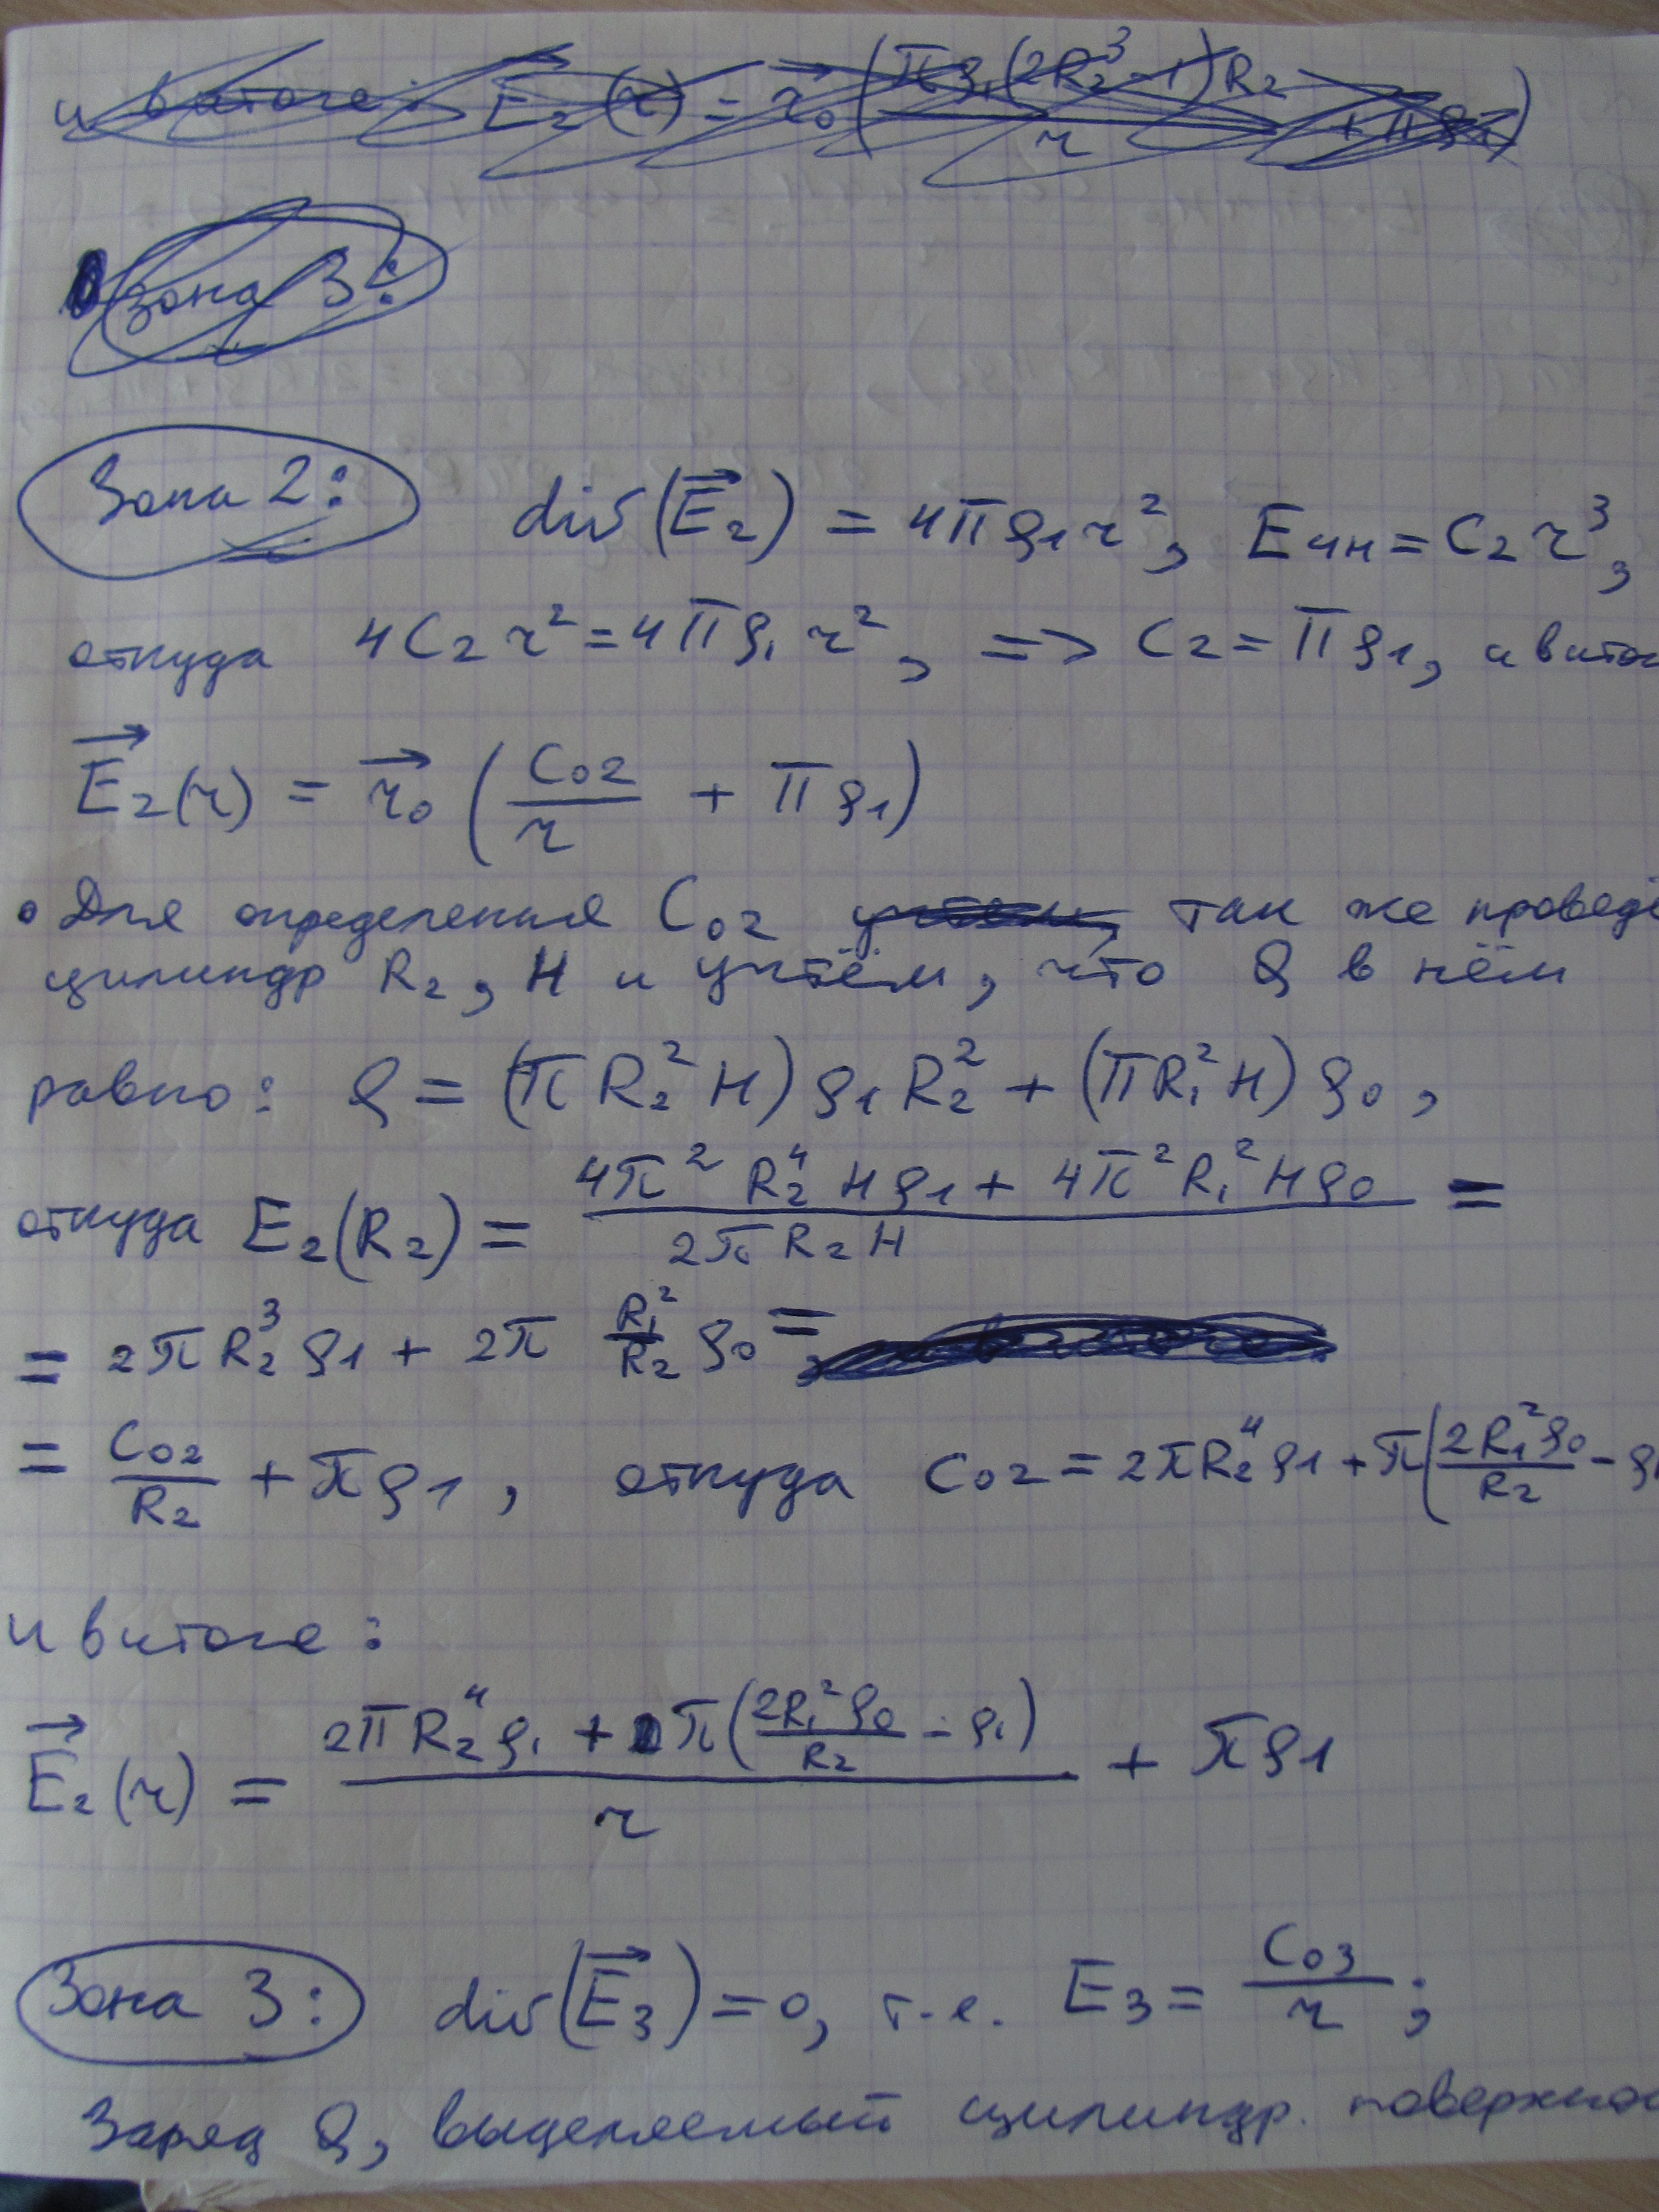 и в итоге: E₂(r) = r₀ (πρ₁(2R₂³-1)R₂ / r + πρ₁)
зона 3:
Зона 2: div(E₂) = 4πρ₁r², Eчн = C₂r³,
откуда 4C₂r² = 4πρ₁r², => C₂ = πρ₁, и в итог
E₂(r) = r₀ (C₀₂ / r + πρ₁)
• Для определения C₀₂ так же проведё
цилиндр R₂, H и учтём, что Q в нём
равно: Q = (πR₂²H)ρ₁R₂² + (πR₁²H)ρ₀,
откуда E₂(R₂) = (4π²R₂⁴Hρ₁ + 4π²R₁²Hρ₀) / 2πR₂H =
= 2πR₂³ρ₁ + 2π R₁²/R₂ ρ₀ =
= C₀₂/R₂ + πρ₁, откуда C₀₂ = 2πR₂⁴ρ₁ + π(2R₁²ρ₀/R₂ - ρ₁
и в итоге:
E₂(r) = (2πR₂⁴ρ₁ + π(2R₁²ρ₀/R₂ - ρ₁)) / r + πρ₁
Зона 3: div(E₃) = 0, т.е. E₃ = C₀₃ / r;
Заряд Q, выделяемый цилиндр. поверхнос